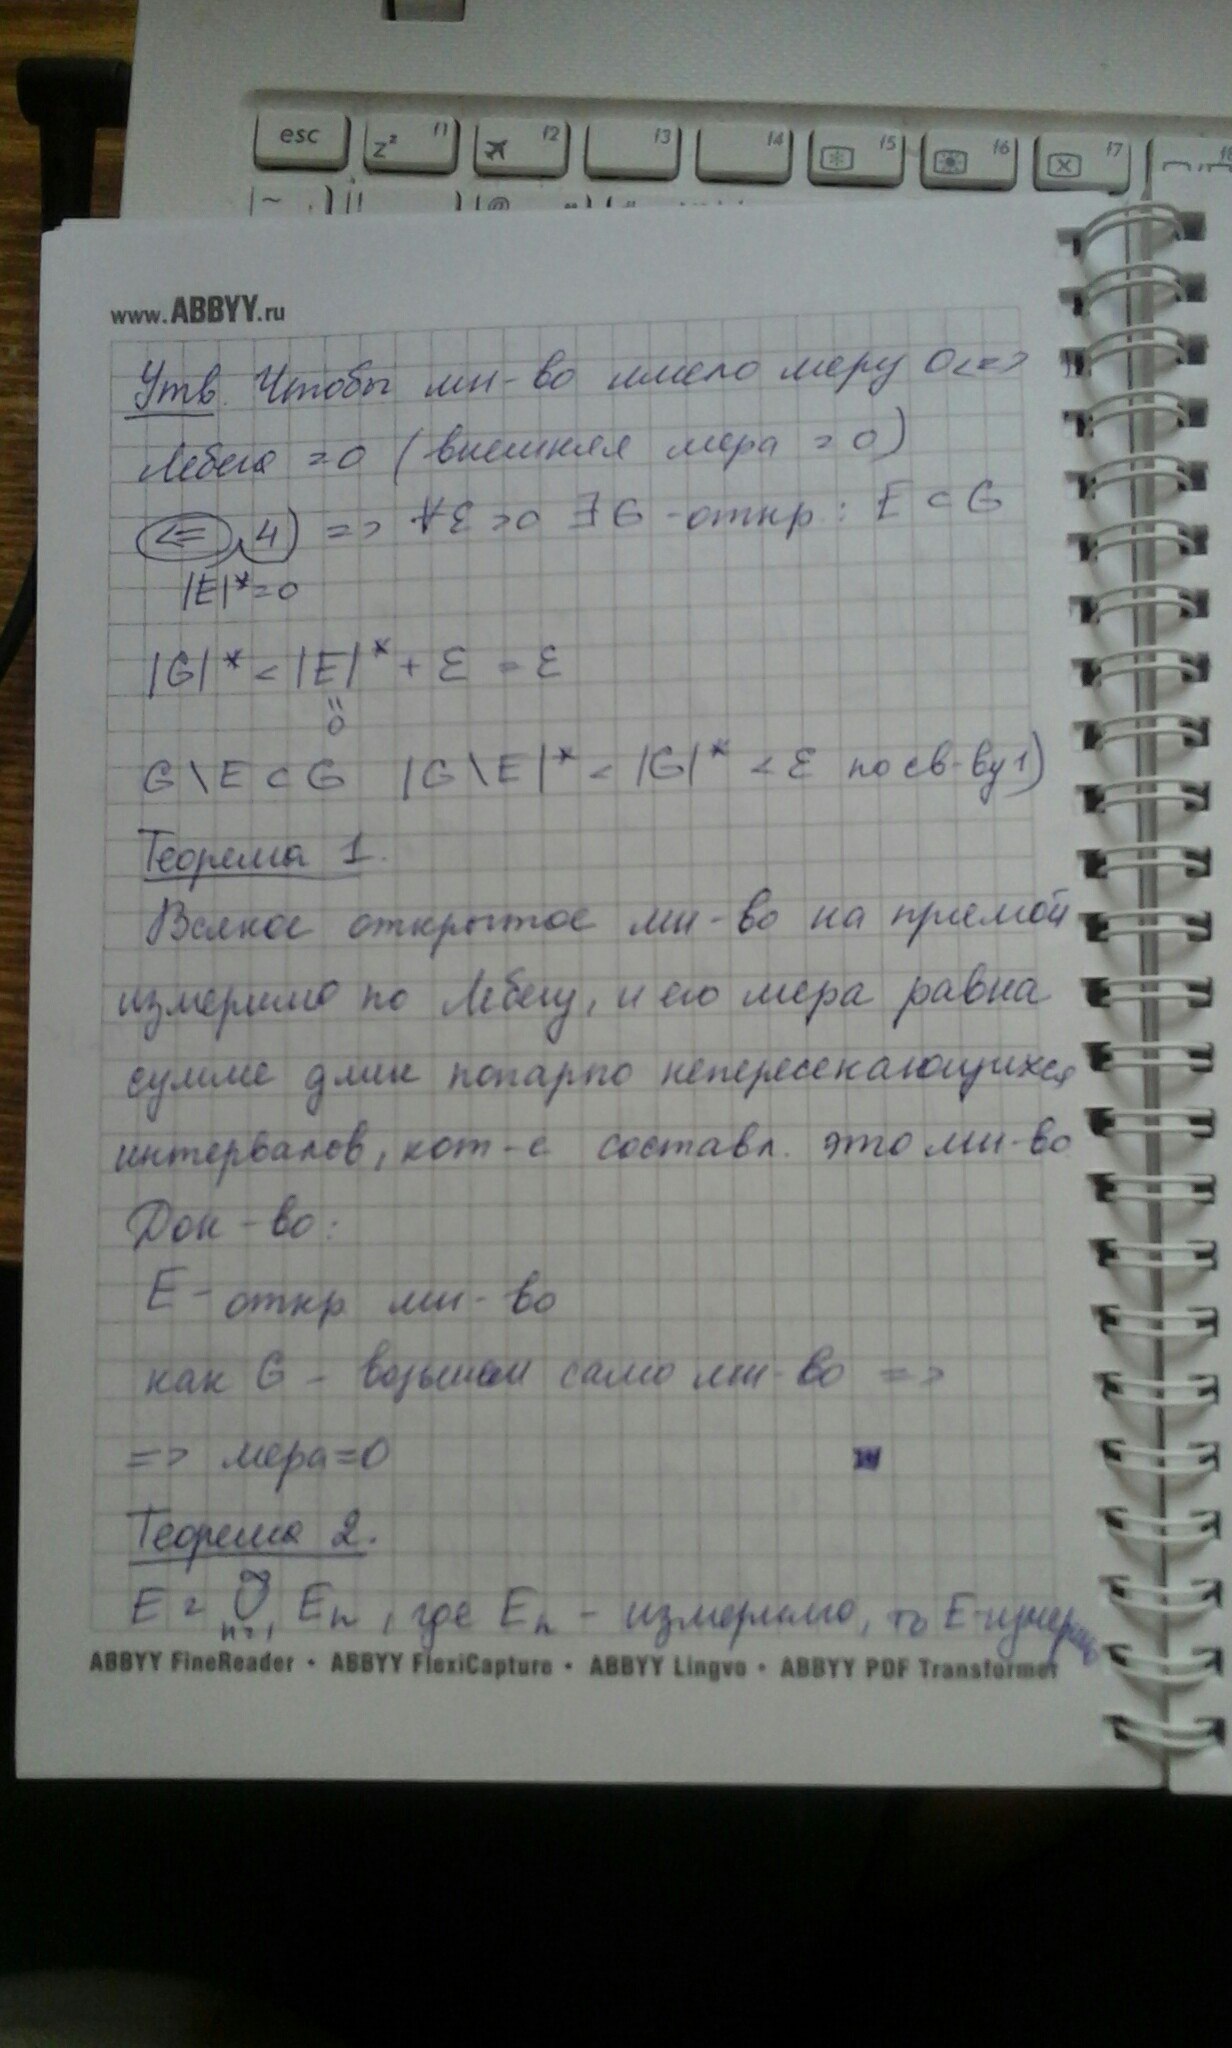 esc
z² f1 f2 f3 f4 f5 f6 f7 f8
~ @ "
www.ABBYY.ru
Утв. Чтобы мн-во имело меру 0 <=>
Лебега =0 (внешняя мера =0)
<=, 4) => ∀ε>0 ∃G-откр: E⊂G
|E|*=0
|G|* < |E|* + ε = ε
=0
G\E⊂G |G\E|* < |G|* < ε по св-ву 1)
Теорема 1.
Всякое открытое мн-во на прямой
измеримо по Лебегу, и его мера равна
сумме длин попарно непересекающихся
интервалов, кот-е составл. это мн-во
Док-во:
E - откр мн-во
как G - возьмем само мн-во =>
=> мера=0
Теорема 2.
E = ∪ₙ₌₁^∞ Eₙ, где Eₙ - измеримо, то E-измерим
ABBYY FineReader • ABBYY FlexiCapture • ABBYY Lingvo • ABBYY PDF Transformer